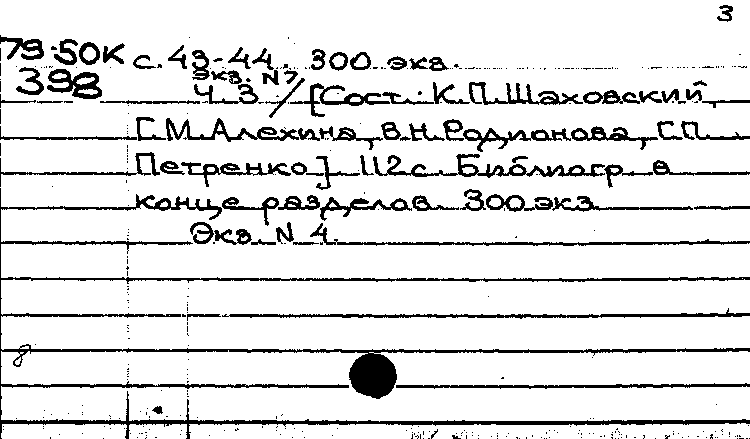 3
79-50К с. 43-44. 300 экз.
398 Экз. N 7
Ч. 3 / [Сост.: К.П.Шаховский,
Г.М.Алехина, В.Н.Родионова, Г.П.
Петренко]. 112 с. Библиогр. в
конце разделов. 300 экз.
Экз. N 4.
8